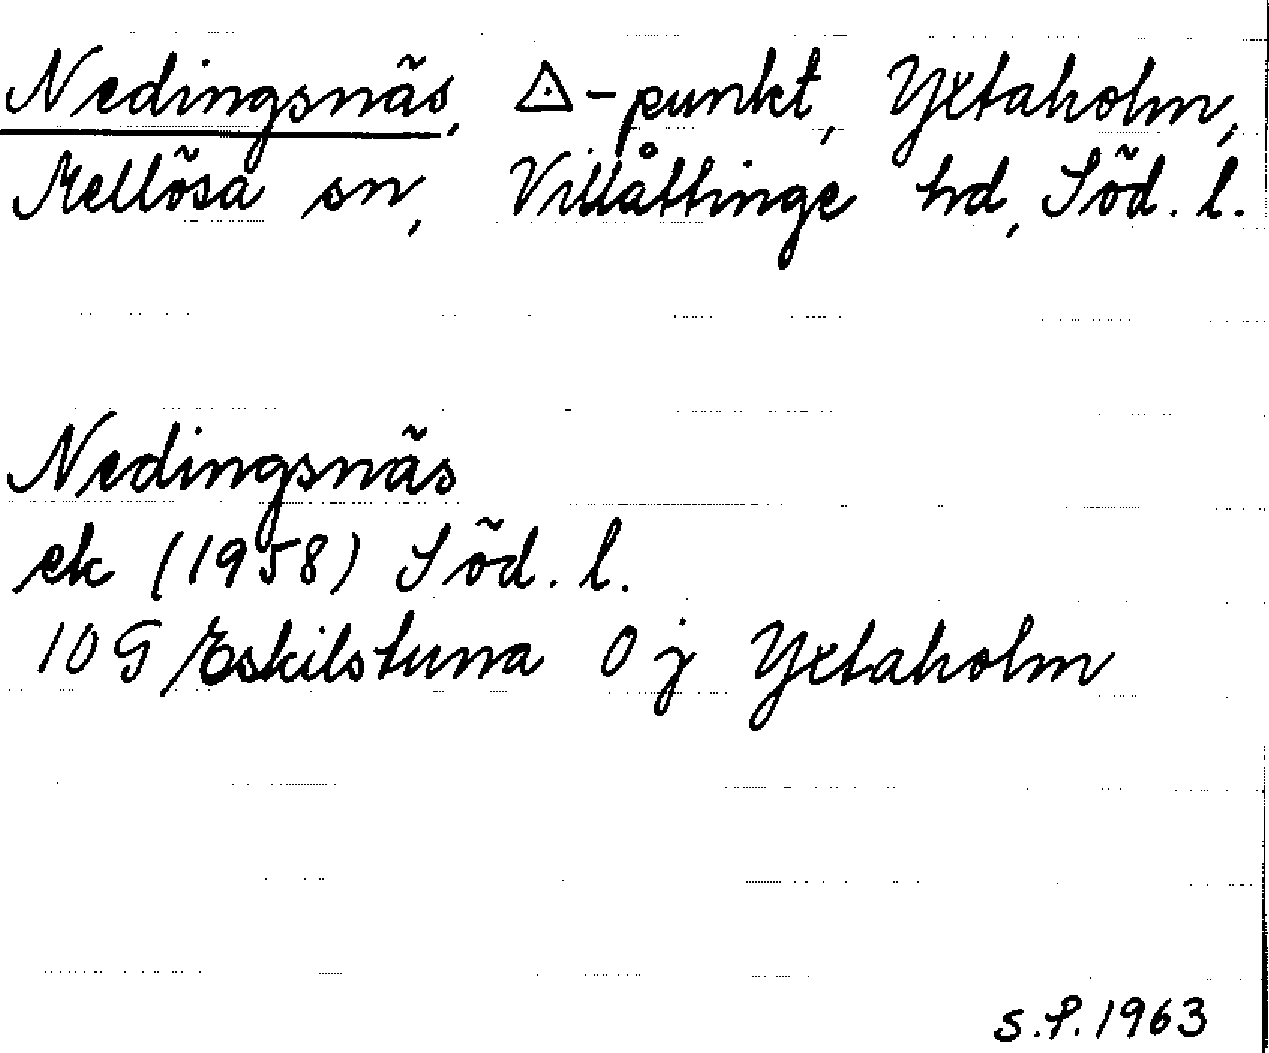 Nedingsnäs, △-punkt, Yxtaholm,
Mellösa sn, Villåttinge hd, Söd. l.
Nedingsnäs
ek (1958) Söd. l.
10 G Eskilstuna 0 j Yxtaholm
S.P. 1963